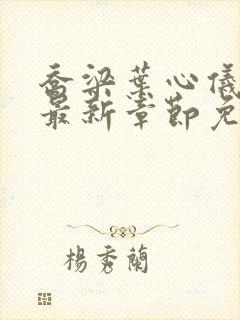 乔梁叶心仪
最新章节免
杨秀兰